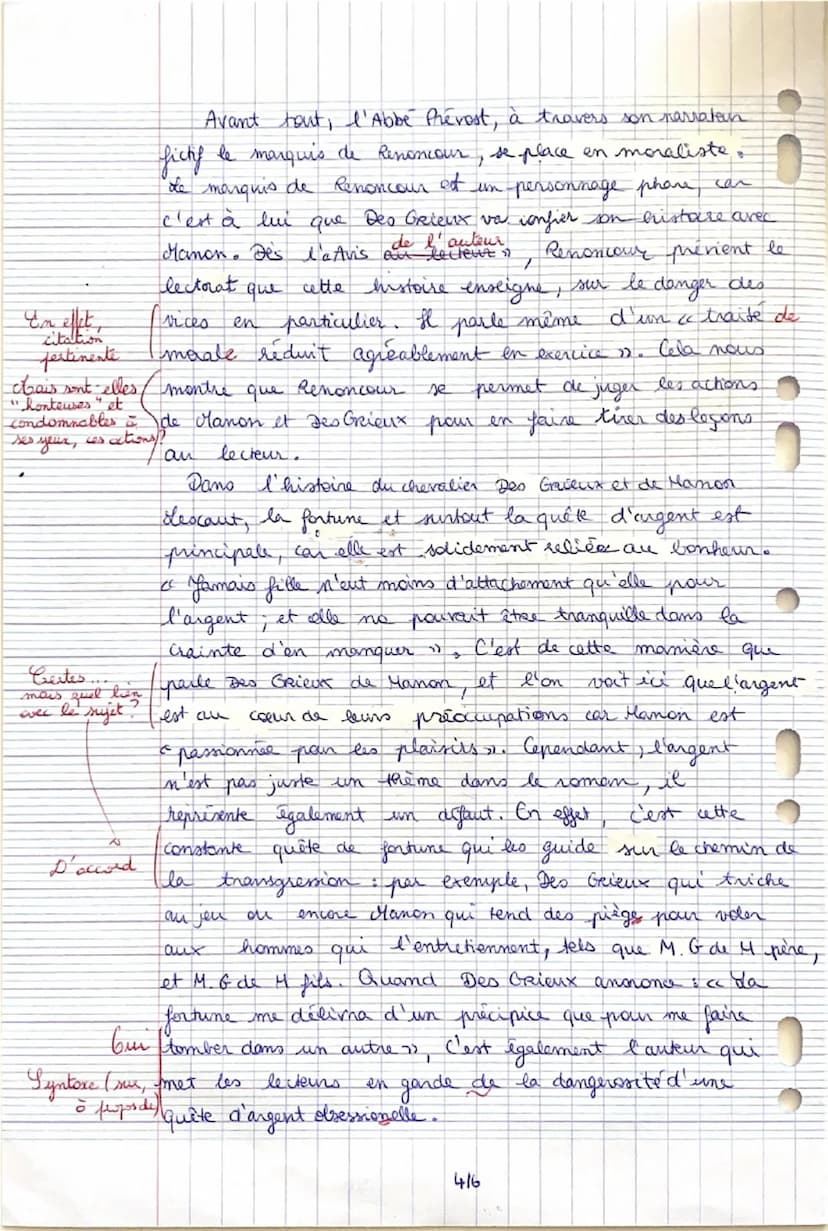 Avant tout, l'Abbé Prévost, à travers son narrateur
fictif le marquis de Renoncour, se place en moraliste.
Le marquis de Renoncour est un personnage phare, car
c'est à lui que Des Grieux va confier son histoire avec
de l'auteur
Manon. Dès l'« Avis au lecteur », Renoncour prévient le
lectorat que cette histoire enseigne, sur le danger des
En effet,
citation
pertinente
vices en particulier. Il parle même d'un « traité de
morale réduit agréablement en exercice ». Cela nous
Mais sont-elles
"honteuses" et
condamnables à
ses yeux, ces actions ?
montre que Renoncour se permet de juger les actions
de Manon et Des Grieux pour en faire tirer des leçons
au lecteur.
Dans l'histoire du chevalier Des Grieux et de Manon
Lescaut, la fortune et surtout la quête d'argent est
principale, car elle est solidement reliée au bonheur.
« Jamais fille n'eut moins d'attachement qu'elle pour
l'argent ; et elle ne pouvait être tranquille dans la
crainte d'en manquer ». C'est de cette manière que
Certes...
mais quel lien
avec le sujet ?
parle Des Grieux de Manon, et l'on voit ici que l'argent
est au cœur de leurs préoccupations car Manon est
« passionnée pour les plaisirs ». Cependant, l'argent
n'est pas juste un thème dans le roman, il
représente également un défaut. En effet, c'est cette
D'accord
constante quête de fortune qui les guide sur le chemin de
la transgression : par exemple, Des Grieux qui triche
au jeu ou encore Manon qui tend des piège pour voler
aux hommes qui l'entretiennent, tels que M. G de M père,
et M. G de M fils. Quand Des Grieux annonce : « La
fortune me délivra d'un précipice que pour me faire
Oui
tomber dans un autre », c'est également l'auteur qui
Syntaxe (sur,
à propos de)
met les lecteurs en garde de la dangerosité d'une
quête d'argent obsessionelle.
4/6